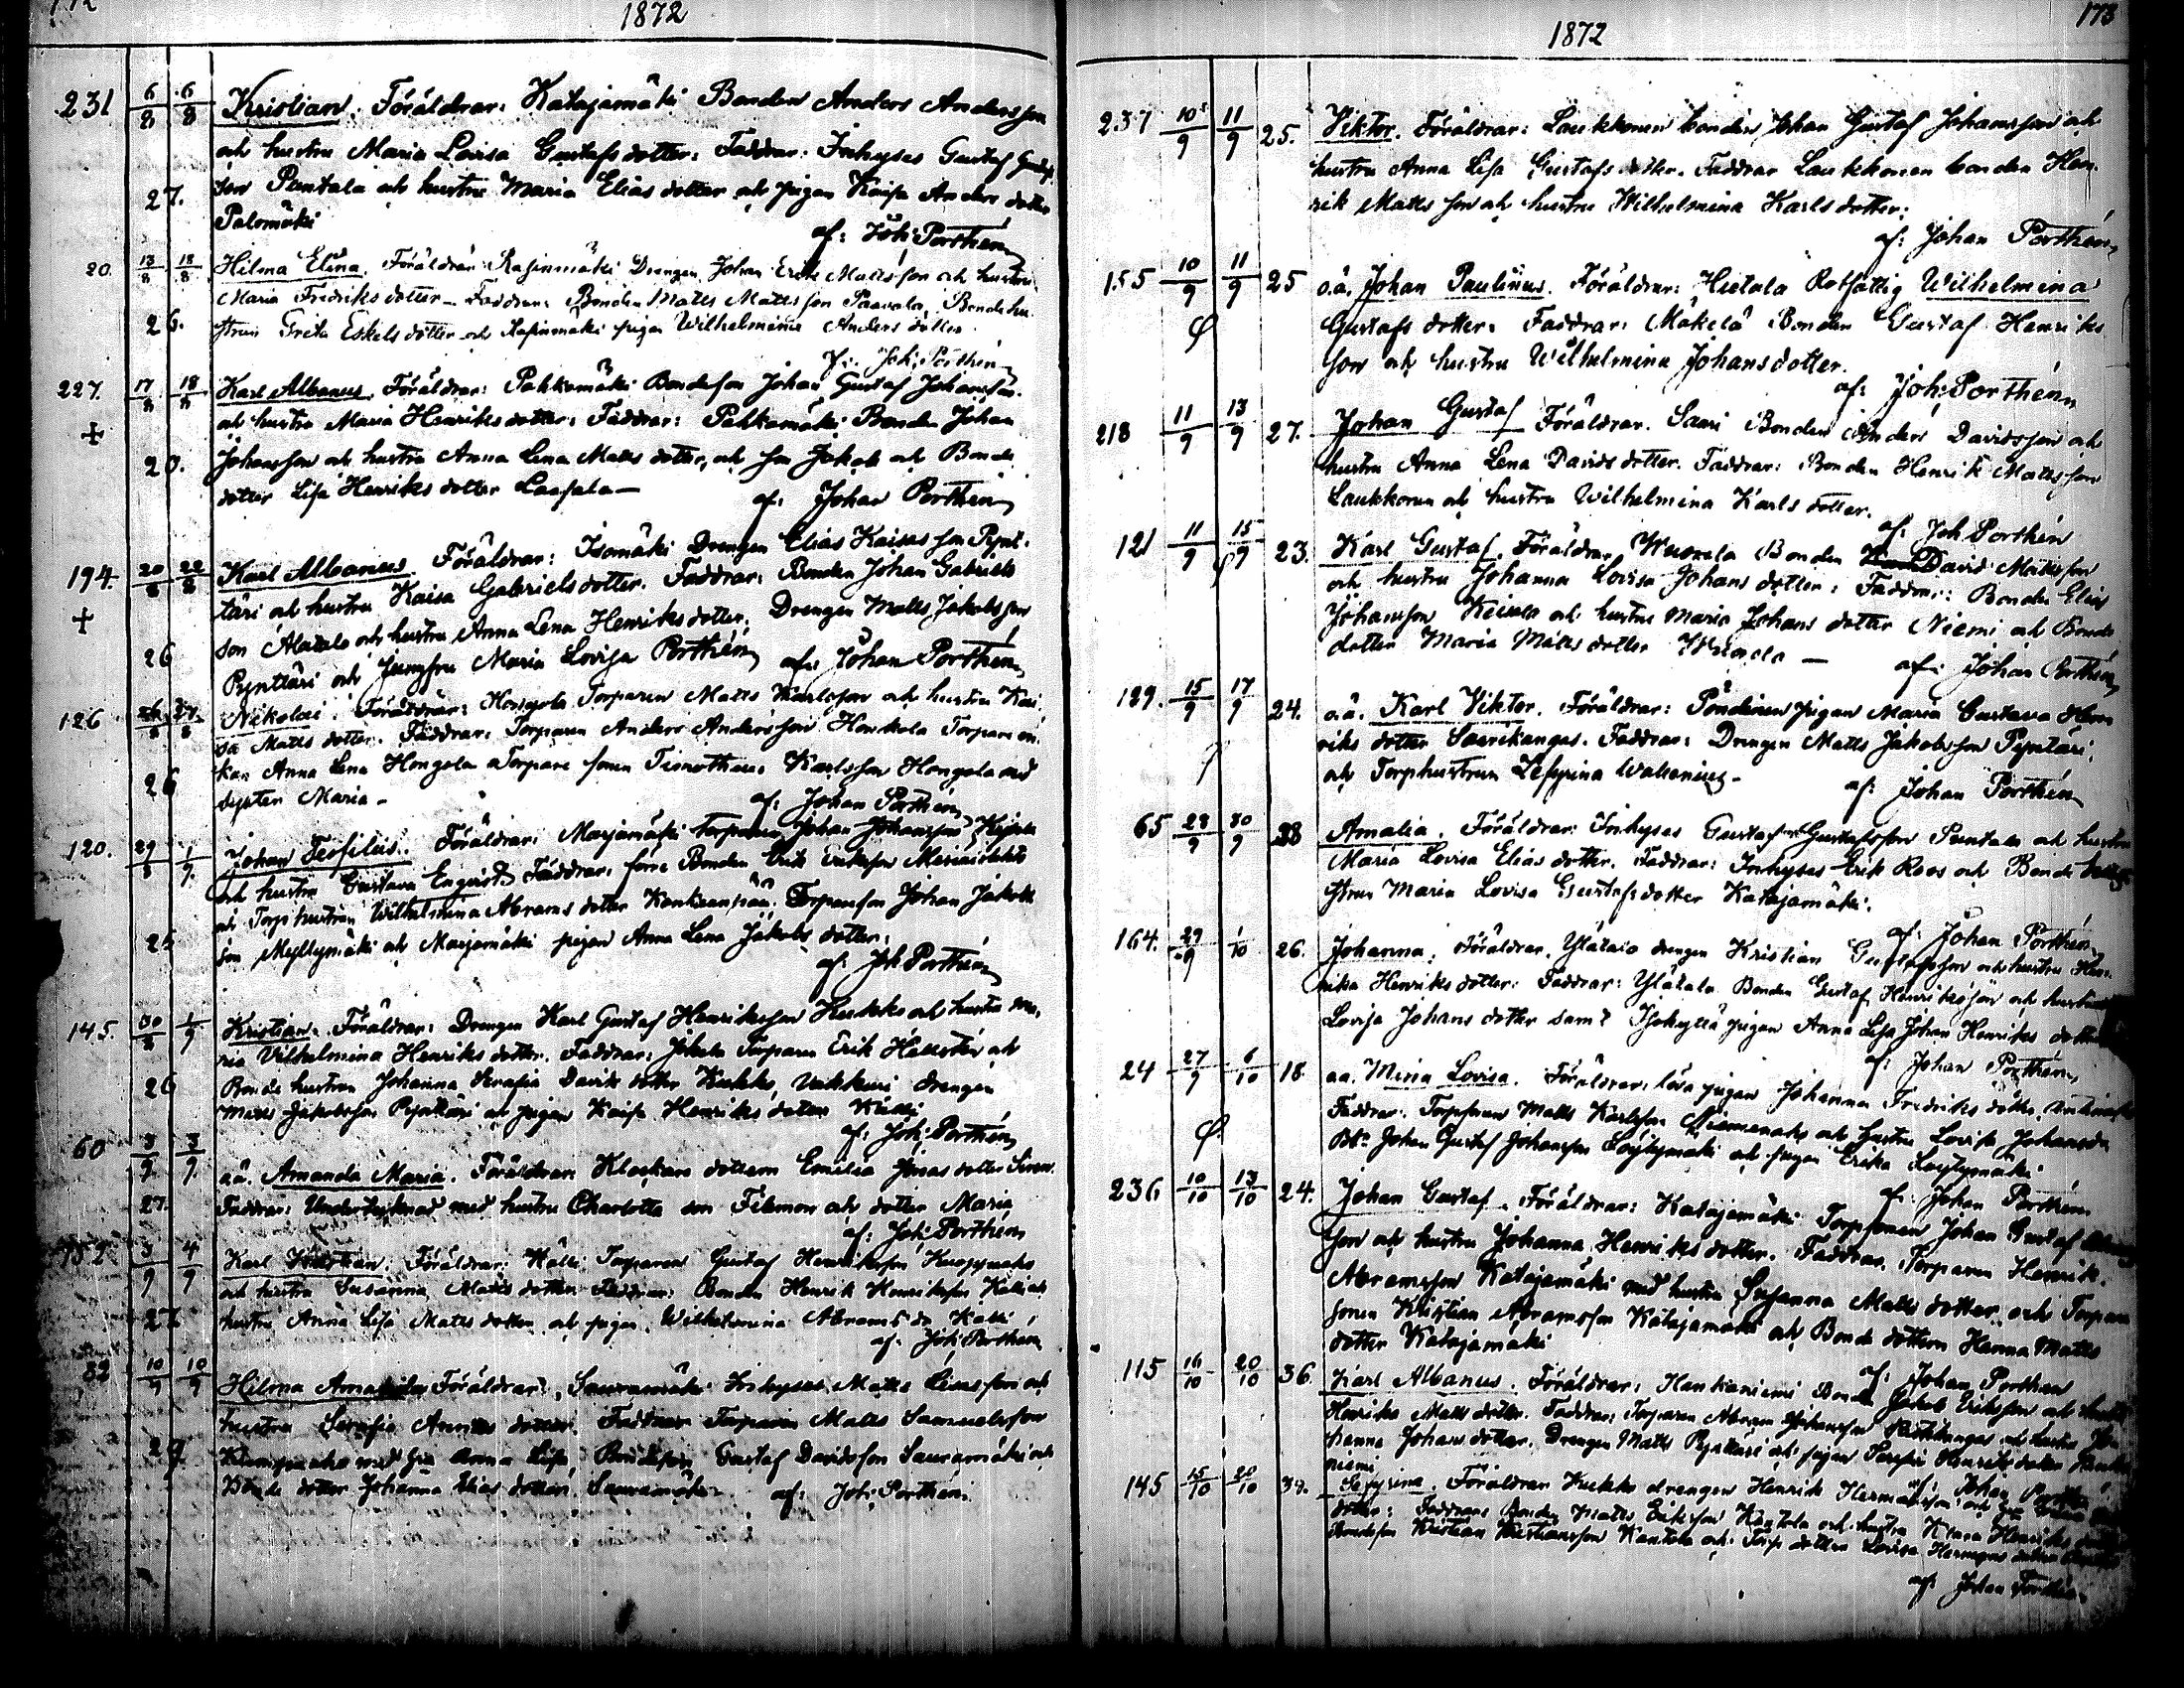 172
1872
231 6/8 6/8 Kristian. Föräldrar: Katajamäki Bonden Anders Andersson
och hustru Maria Lovisa Gustafsdotter. Faddrar: Inhyses Gustaf Gustafs
27. son Puntala och hustru Maria Elias dotter och pigan Kaisa Anders dotter
Palomäki
af: Joh: Porthén
20. 13/8 18/8 Hilma Elina. Föräldrar: Drengen Johan Erik Mattsson och hustru
Maria Fredriks dotter. Faddrar: Bonden Matts Mattsson Paavola, Bondehu-
26. strun Greta Eskels dotter och pigan Wilhelmina Anders dotter.
af: Joh: Porthén
227. 17/8 18/8 Karl Albanus. Föräldrar: Pahkamäki Bondeson Johan Gustaf Johansson
och hustru Maria Henriks dotter. Faddrar: Pahkamäki Bonden Johan
+ 20. Johansson och hustru Anna Lena Matts dotter, och son Jakob och Bonde
dotter Lisa Henriks dotter Laasala
af: Johan Porthén
194. 20/8 22/8 Karl Albanus. Föräldrar: Isomäki Drengen Elias Kaisasson Pynt-
+ täri och hustru Kaisa Gabriels dotter. Faddrar: Bonden Johan Gabriels
son Alatalo och hustru Anna Lena Henriks dotter, Drengen Matts Jakobsson
26 Pynttäri och Jungfru Maria Lovisa Porthén af: Johan Porthén
126 26/8 27/8 Nikolai. Föräldrar: Hongola Torparen Matts Karlsson och hustru Kai-
sa Matts dotter. Faddrar: Torparen Anders Andersson Honkola Torpare en-
26 kan Anna Lena Hongola Torpare sonen Timotheus Karlsson Hongola med
syster Maria
af: Johan Porthén
120. 29/8 1/9 Johan Teofilus. Föräldrar: Marjamäki Torparen Johan Johansson
och hustru Gustava Enqvist. Faddrar: förre Bonden Erik Eriksson
och Torphustrun Wilhelmina Abrams dotter Kankaanpää. Torparson Johan Jakobs
25 son Myllymäki och Marjamäki pigan Anna Lena Jakobs dotter.
af: Joh Porthén
145. 30/8 1/9 Kristian. Föräldrar: Drengen Karl Gustaf Henriksson Kukko och hustru Ma-
ria Vilhelmina Henriks dotter. Faddrar: Jokela Torparen Erik Hällstén och
26 Bonde hustrun Johanna Serafia Davids dotter Kukko, drengen
Matts Jakobsson Pynttäri och pigan Kaisa Henriks dotter Källi
af: Joh: Porthén
60 3/9 3/9 o.ä. Amanda Maria. Föräldrar: Klockare dottern Emilia Jonas dotter Siren.
27. Faddrar: Undertecknad med hustru Charlotta son Filemon och dotter Maria
af: Joh: Porthén
152 3/9 4/9 Karl Kristian. Föräldrar: Källi Torparen Gustaf Henriksson
och hustru Susanna Matts dotter. Faddrar: Bonden Henrik Henriksson Källi och
27 hustru Anna Lisa Matts dotter och pigan Wilhelmina Abrams dr Källi
af: Joh: Porthén
82 10/9 10/9 Hilma Föräldrar: Sauramäki Inhyses Matts Eliasson och
hustru Serafia dotter. Faddrar Torparen Matts Samuelsson
29. med hu Anna Lisa, Bondeson Gustaf Davidsson Sauramäki och
Bonde dotter Johanna Elias dotter Sauramäki
af: Joh: Porthén.
173
1872
237 10/9 11/9 25. Viktor. Föräldrar: Laukkonen bonden Johan Gustaf Johansson och
hustru Anna Lisa Gustafs dotter. Faddrar Laukkonen bonden Hen-
rik Matts son och hustru Wilhelmina Karls dotter.
af: Johan Porthén
155 10/9 11/9 25 o.ä. Johan Paulinus. Föräldrar: Hietala Rotfattig Wilhelmina
Gustafs dotter. Faddrar: Mäkelä Bonden Gustaf Henriks
son och hustru Wilhelmina Johansdotter.
af: Joh: Porthén
218 11/9 13/9 27. Johan Gustaf Föräldrar. Saari Bonden Anders Davidsson och
hustru Anna Lena Davids dotter. Faddrar: Bonden Henrik Mattsson
Laukkonen och hustru Wilhelmina Karls dotter.
af: Joh Porthén
121 11/9 15/9 23. Karl Gustaf. Föräldrar Bonden David Mattsson
och hustru Johanna Lovisa Johans dotter. Faddrar: Bonden Elias
Johansson och hustru Maria Johans dotter Niemi och Bonde
dotter Maria Matts dotter
af: Johan Porthén
189. 15/9 17/9 24. o.ä. Karl Viktor. Föräldrar: Pöndinen pigan Maria Gustava Hen-
riks dotter Saarikangas. Faddrar: Drengen Matts Jakobsson Pynttäri,
och Torphustrun Sefyrina
af: Johan Porthén
65 28/9 30/9 28 Amalia. Föräldrar: Inhyses Gustaf Gustafsson Puntala och hustru
Maria Lovisa Elias dotter. Faddrar: Inhyses Erik Roos och Bonde
strun Maria Lovisa Gustafsdotter Katajamäki.
af: Johan Porthén
164. 29/9 1/10 26. Johanna. Föräldrar. Ylätalo drengen Kristian Gustafsson och hustru Hen-
rika Henriks dotter. Faddrar: Ylätalo Bonden Gustaf Henriksson och hustru
Lovisa Johans dotter samt Isokyttä pigan Anna Lisa Johan Henriks dotter
af: Johan Porthén
24 27/9 6/10 18 oä. Mina Lovisa. Föräldrar: lösa pigan Johanna Fredriks dotter
Faddrar: Torparen Matts Karlsson Niemenaho och hustru Lovisa Johansdr
Johan Gustaf Johansson Löytymäki och pigan Erika Löytymäki
af: Johan Porthén
236 10/10 13/10 24. Johan Gustaf. Föräldrar: Katajamäki Torpsonen Johan Gustaf
son och hustru Johanna Henriks dotter. Faddrar. Torparen Henrik
Abramsson Katajamäki med hustru Susanna Matts dotter och Torpare
sonen Kristian Abramsson Katajamäki och Bonde dottern Hanna Matts
dotter Katajamäki
af: Johan Porthén
115 16/10 20/10 36. Karl Albanus. Föräldrar: Hankaniemi Bonden Jakob Eriksson och hustru
Henrika Matts dotter. Faddrar: Torparen Abram Johansson och hustru Jo-
hanna Johans dotter. Drengen Matts Pynttäri och pigan Serafia Henriks dotter
niemi
af: Johan Porthén
145 15/10 20/10 Sefyrina. Föräldrar Kukko drengen Henrik Hermansson och
dotter: Faddrar: Bonden Matts Eriksson Kantola och hustru Klara Henriks
Bondeson Kristian Kristiansson Kantola och Torp dotter Lovisa Hermans dotter
af: Johan Porthén.